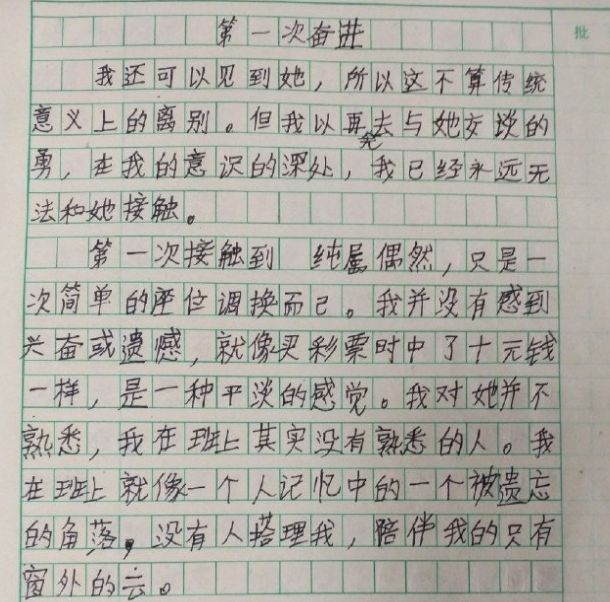 第一次奋进
批
我还可以见到她，所以这不算传统
意义上的离别。但我以再去与她交谈的
充
勇，在我的意识的深处，我已经永远无
法和她接触。
第一次接触到 纯属偶然，只是一
次简单的座位调换而已。我并没有感到
兴奋或遗憾，就像买彩票时中了十元钱
一样，是一种平淡的感觉。我对她并不
熟悉，我在班上其实没有熟悉的人。我
在班上就像一个人记忆中的一个被遗忘
的角落，没有人搭理我，陪伴我的只有
窗外的云。